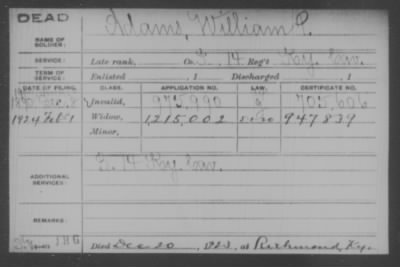 DEAD
Adams, William P.
NAME OF SOLDIER:
SERVICE: Late rank, Co. 14 Reg't Ky. Inv.
TERM OF SERVICE: Enlisted , 1 Discharged , 1
DATE OF FILING. CLASS. APPLICATION NO. LAW. CERTIFICATE NO.
Invalid, 975,990 705,606
1924 Feb 1 Widow, 1,215,002 947839
Minor,
14 Ky. Inv.
ADDITIONAL SERVICES:
REMARKS:
Died Dec 20, 1923, at Richmond, Ky.